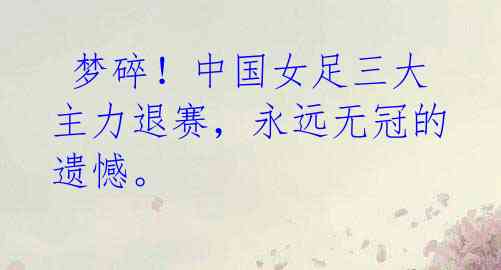 梦碎！中国女足三大
主力退赛，永远无冠的
遗憾。